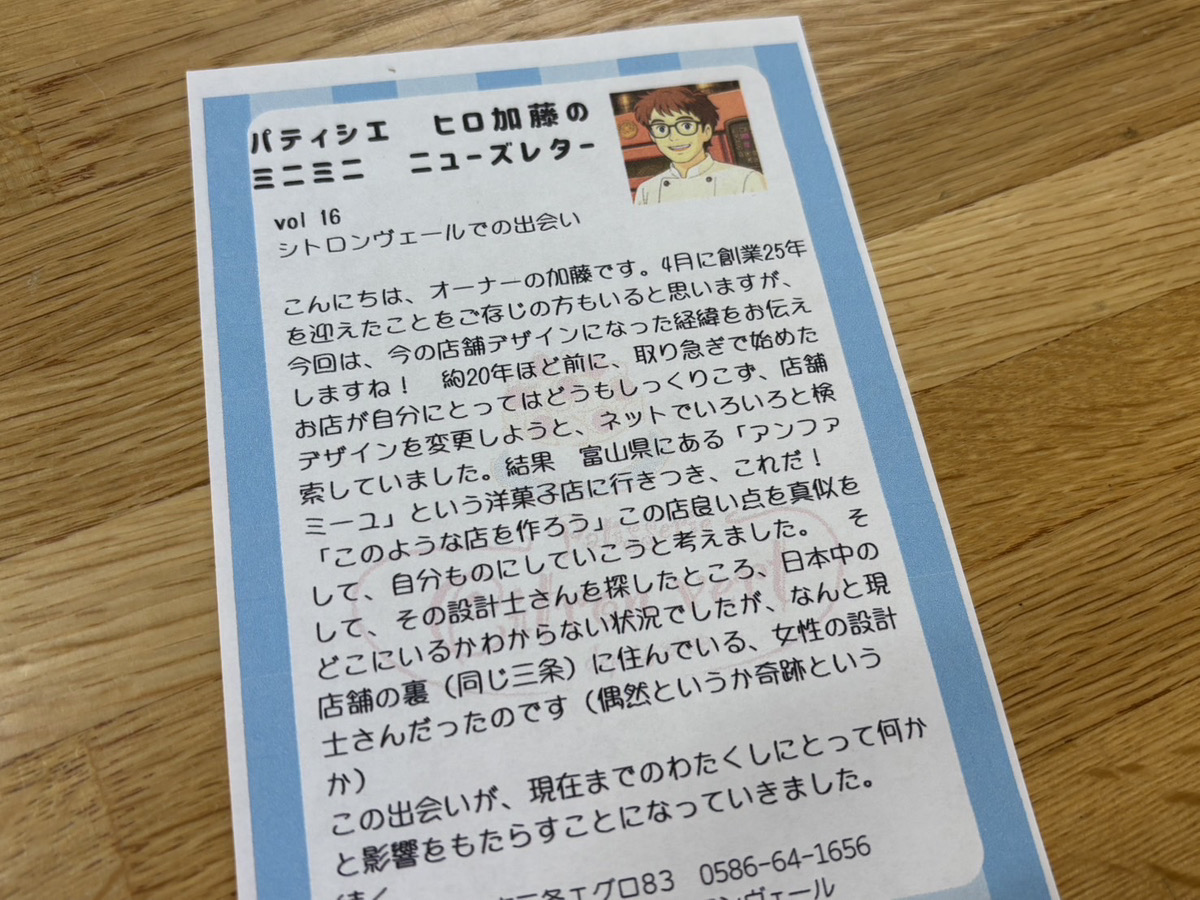 パティシエ　ヒロ加藤の
ミニミニ　ニューズレター
vol 16
シトロンヴェールでの出会い
こんにちは、オーナーの加藤です。4月に創業25年
を迎えたことをご存じの方もいると思いますが、
今回は、今の店舗デザインになった経緯をお伝え
しますね！　約20年ほど前に、取り急ぎで始めた
お店が自分にとってはどうもしっくりこず、店舗
デザインを変更しようと、ネットでいろいろと検
索していました。結果　富山県にある「アンファ
ミーユ」という洋菓子店に行きつき、これだ！
「このような店を作ろう」この店良い点を真似を
して、自分ものにしていこうと考えました。　そ
して、その設計士さんを探したところ、日本中の
どこにいるかわからない状況でしたが、なんと現
店舗の裏（同じ三条）に住んでいる、女性の設計
士さんだったのです（偶然というか奇跡という
か）
この出会いが、現在までのわたくしにとって何か
と影響をもたらすことになっていきました。
三条エグロ83　0586-64-1656
ロンヴェール
Patisserie
Citron vert